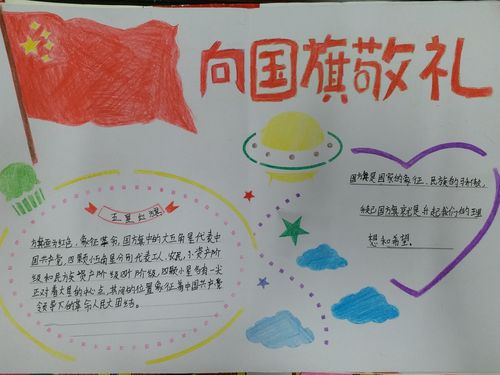 向国旗敬礼
五星红旗
旗面为红色，象征革命，国旗中的大五角星代表中
国共产党，四颗小五角星分别代表工人、农民、小资产阶
级和民族资产阶级四个阶级，四颗小星各有一尖
正对着大星的中心点，其间的位置象征着中国共产党
领导下的革命人民大团结。
国旗是国家的象征，民族的
国旗就是升起我们的理
想和希望。